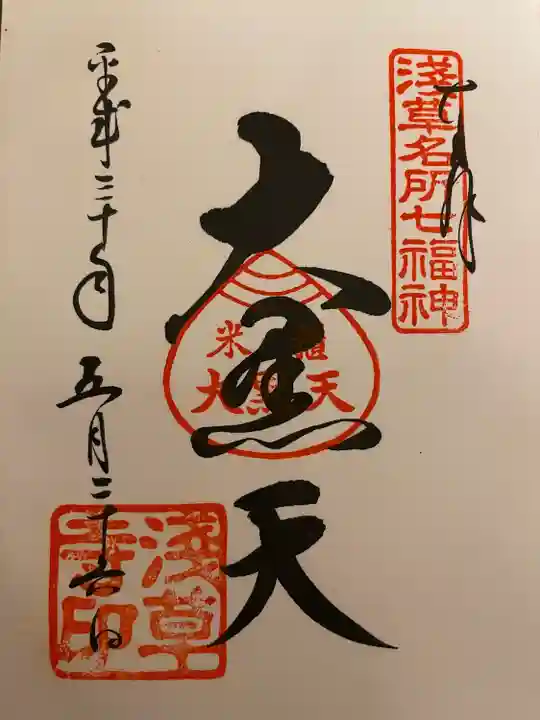 淺草名所七福神
奉拝
大黒天
米櫃
大黒天
平成三十年 五月二十六日
淺草
寺印